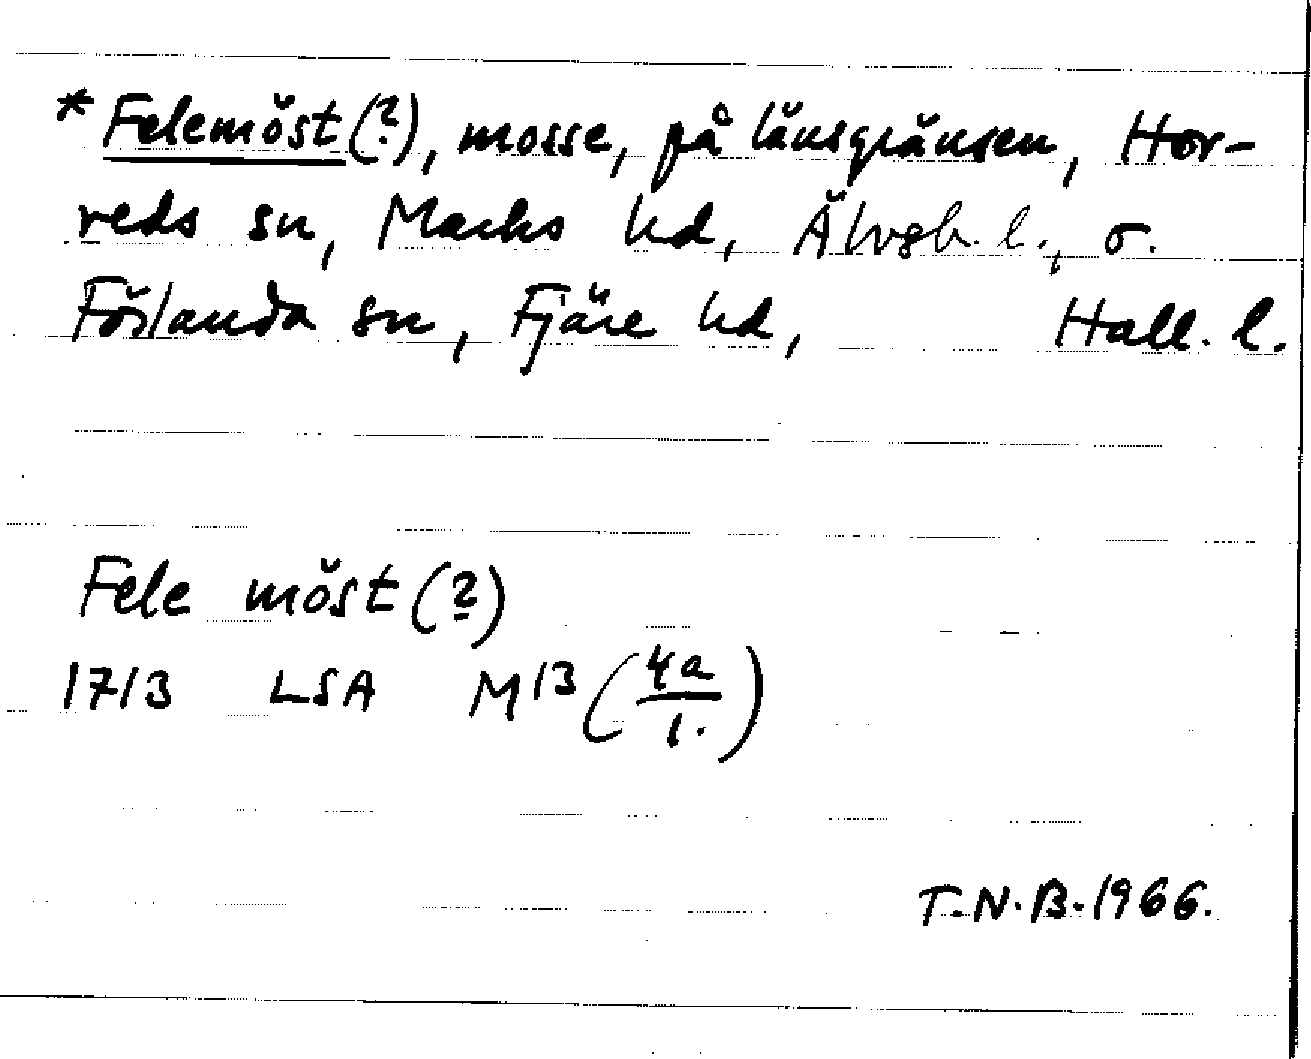 * Felemöst (?), mosse, på länsgränsen, Hor-
reds sn, Marks hd, Älvsb. l., o.
Förlanda sn, Fjäre hd, Hall. l.
Fele möst (?)
1713 LSA M13 (4a/1.)
T.N.B. 1966.